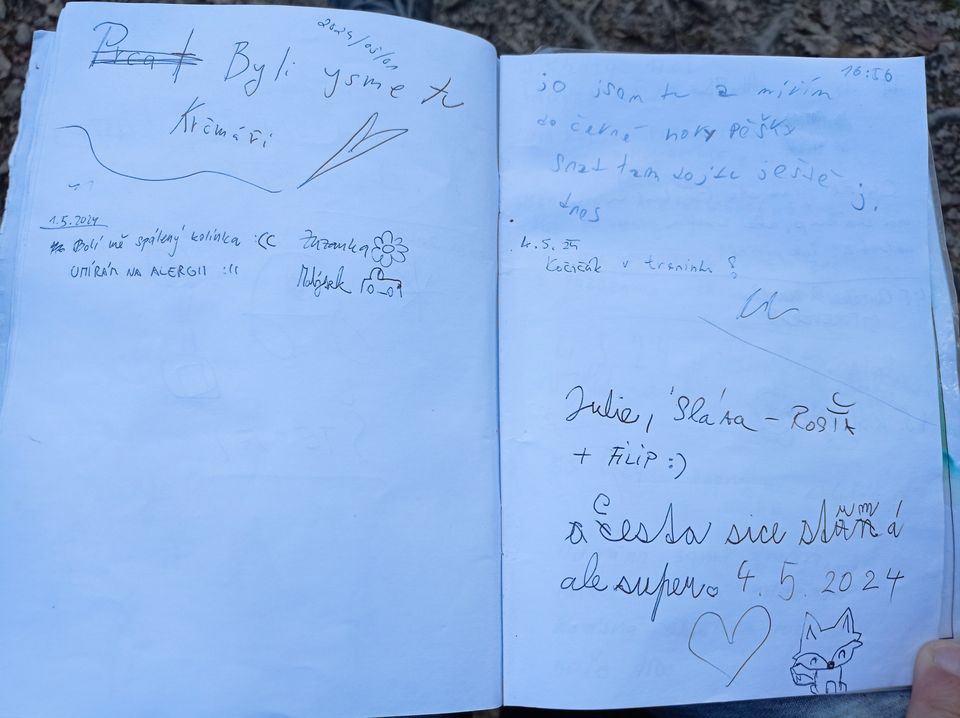 2024/05/01
Prcat Byli ysme tu
Krčmáři
1.5.2024
Bolí mě spálený kolínka :CC Zuzanka
UMÍRÁM NA ALERGII :((
Matýsek
16:56
jo jsem tu a mířím
do černé hory pěšky
snad tam dojdu ještě j.
dnes
4.5. 24
Kočičák v tréninku
Julie, Sláva - ROSIČ
+ FILIP :)
a cesta sice
ale super. 4.5.2024